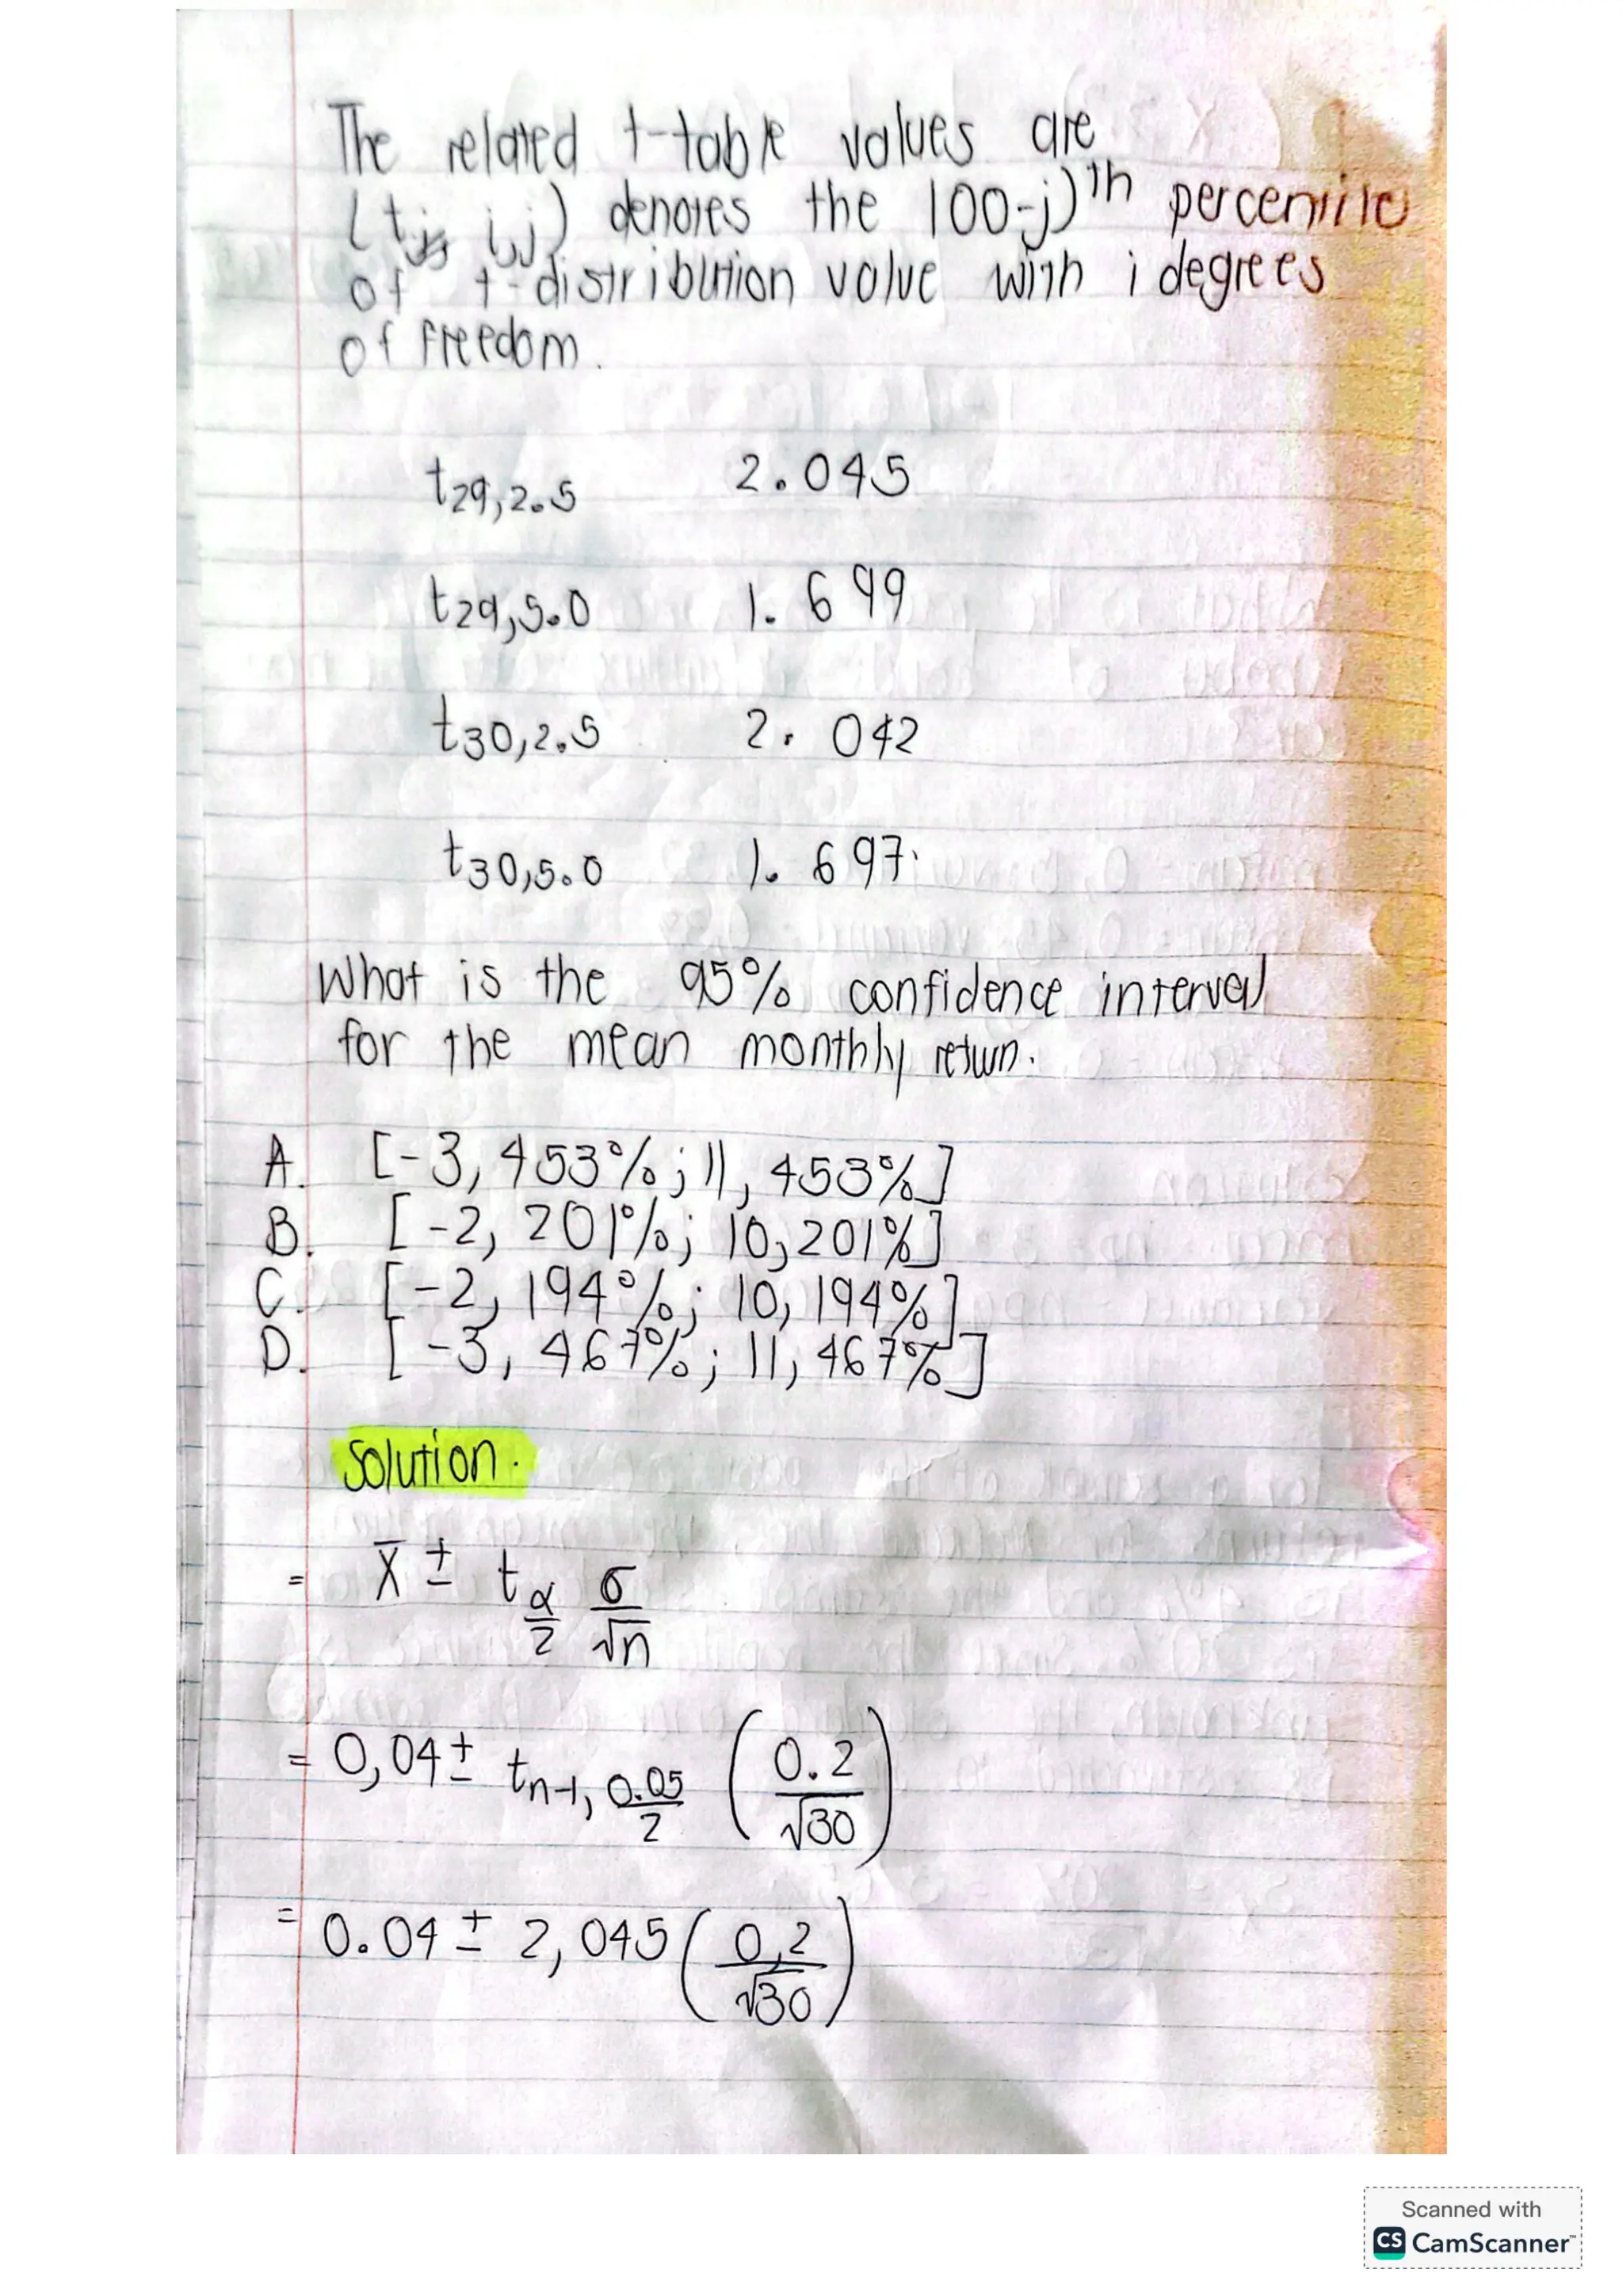 The related t-table values are
(t i,j) denotes the 100-j)th percentile
of t-distribution value with i degrees
of freedom.
t29,2.5 2.045
t29,5.0 1.699
t30,2.5 2.042
t30,5.0 1.697
What is the 95% confidence interval
for the mean monthly return.
A. [-3,453%; 11,453%]
B. [-2,201%; 10,201%]
C. [-2,194%; 10,194%]
D. [-3,467%; 11,467%]
Solution.
= X̄ ± t α/2 σ/√n
= 0,04 ± tn-1, 0.05/2 (0.2/√30)
= 0.04 ± 2,045 (0,2/√30)
Scanned with
CS CamScanner™